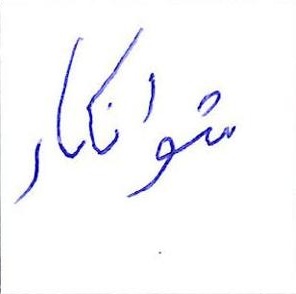 شوانکار